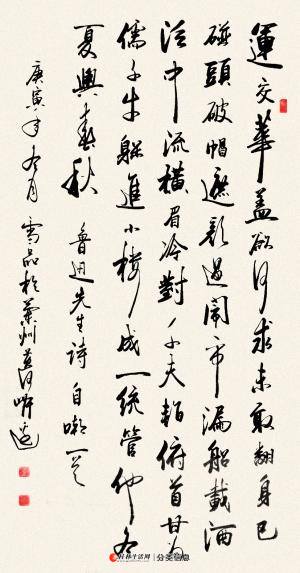 運交華盖欲何求未敢翻身已
碰頭破帽遮颜過鬧市漏船載酒
泛中流横眉冷對千夫指俯首甘为
儒子牛躲進小樓成一統管他冬
夏與春秋 魯迅先生詩 自嘲一首
庚寅年冬月 雪品於蘭州黄河畔
桂林生活网 分类信息